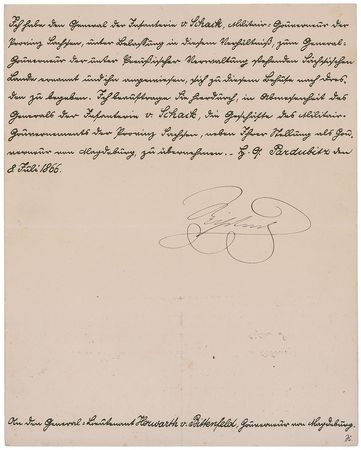 Ich habe den General der Infanterie v. Schack, Militair-Gouverneur der
Provinz Sachsen, unter Belassung in diesem Verhältniß, zum General-
Gouverneur der unter Preußischer Verwaltung stehenden Sächsischen
Lande ernannt und ihn angewiesen, sich zu diesem Behufe nach Dres-
den zu begeben. Ich beauftrage Sie hierdurch, in Abwesenheit des
Generals der Infanterie v. Schack, die Geschäfte des Militair-
Gouvernements der Provinz Sachsen, neben Ihrer Stellung als Gou-
verneur von Magdeburg, zu übernehmen. H. Q. Pardubitz den
8 Juli 1866.
An den General-Lieutenant Herwarth v. Bittenfeld, Gouverneur von Magdeburg.